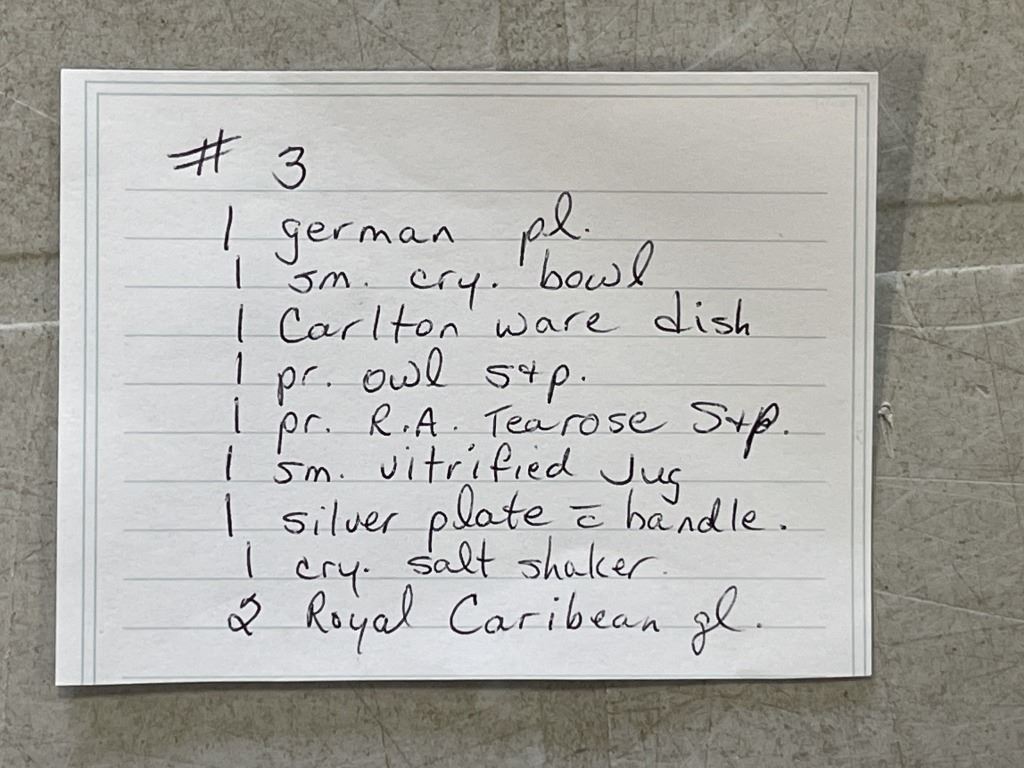 # 3
1 german pl.
1 sm. cry. bowl
1 Carlton ware dish
1 pr. owl s+p.
1 pr. R.A. Tearose S+p.
1 sm. vitrified Jug
1 silver plate c̄ handle.
1 cry. salt shaker.
2 Royal Caribean gl.